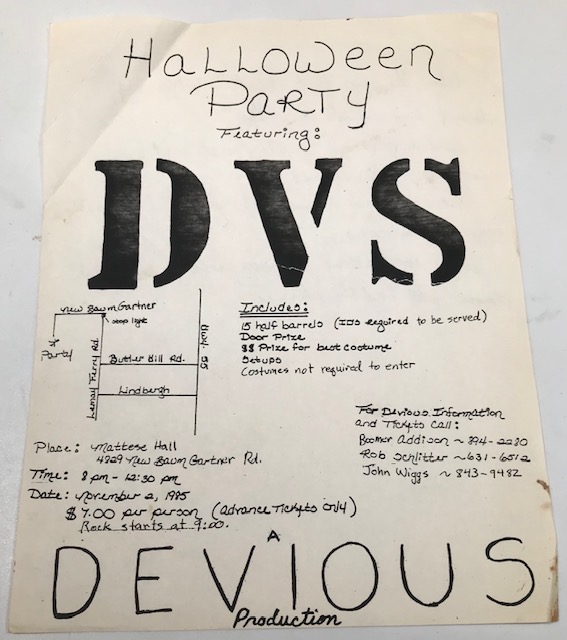 Halloween
Party
Featuring:
DVS
New Baum Gartner
stop light
Party
Butler Hill Rd.
Lindbergh
Lemay Ferry Rd.
Hwy. 55
Includes:
15 half barrels (IDs required to be served)
Door Prize
$$ Prize for best costume
Setups
Costumes not required to enter
For Devious Information
and Tickets Call:
Boomer Addison ~ 894-2280
Rob Schlitter ~ 631-6512
John Wiggs ~ 843-9482
Place: Mattese Hall
4829 New Baum Gartner Rd.
Time: 8 pm - 12:30 pm
Date: November 2, 1985
$7.00 per person (Advance Tickets Only)
Rock starts at 9:00.
A
DEVIOUS
Production